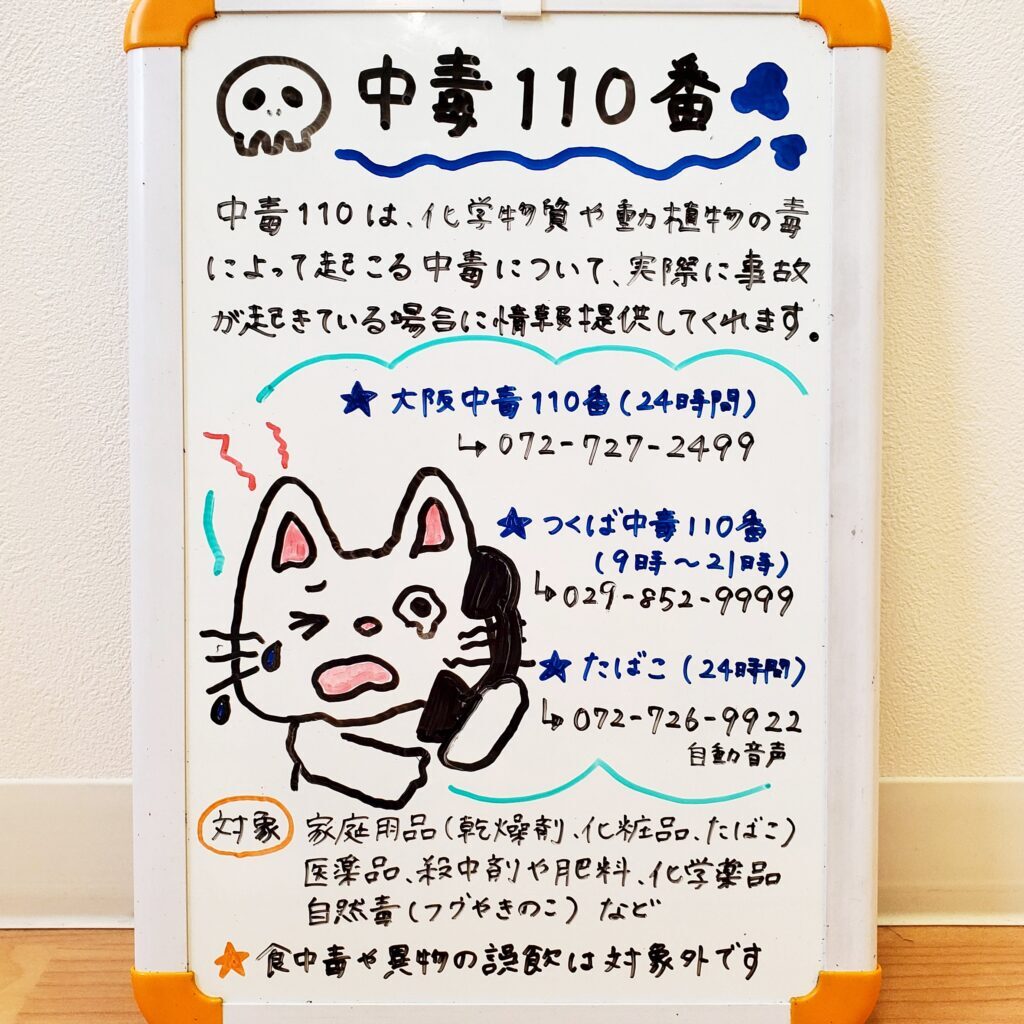 中毒110番
中毒110は、化学物質や動植物の毒
によって起こる中毒について、実際に事故
が起きている場合に情報提供してくれます。
★ 大阪中毒110番(24時間)
↳ 072-727-2499
★ つくば中毒110番
(9時〜21時)
↳ 029-852-9999
★ たばこ(24時間)
↳ 072-726-9922
自動音声
対象 家庭用品(乾燥剤、化粧品、たばこ)
医薬品、殺虫剤や肥料、化学薬品
自然毒(フグやきのこ)など
★ 食中毒や異物の誤飲は対象外です